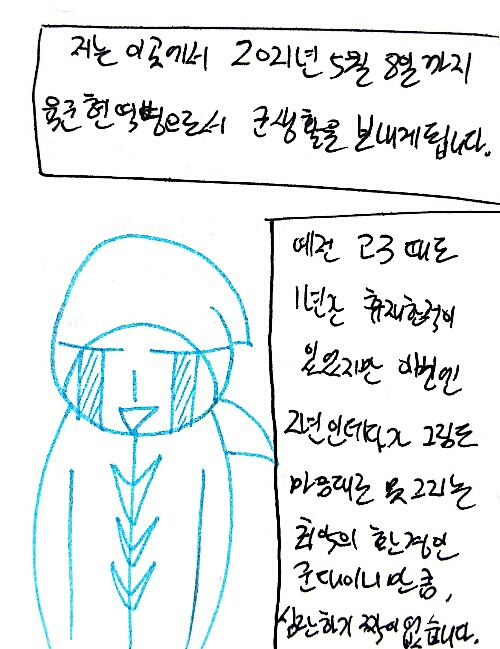 저는 이곳에서 2021년 5월 8일까지
육군 현역병으로서 군생활을 보내게됩니다.
예전 고3 때도
1년간 휴재한적이
있었지만 이번엔
2년인데다가 그림도
마음대로 못그리는
최악의 환경인
군대이니만큼,
심란하기 짝이없습니다.